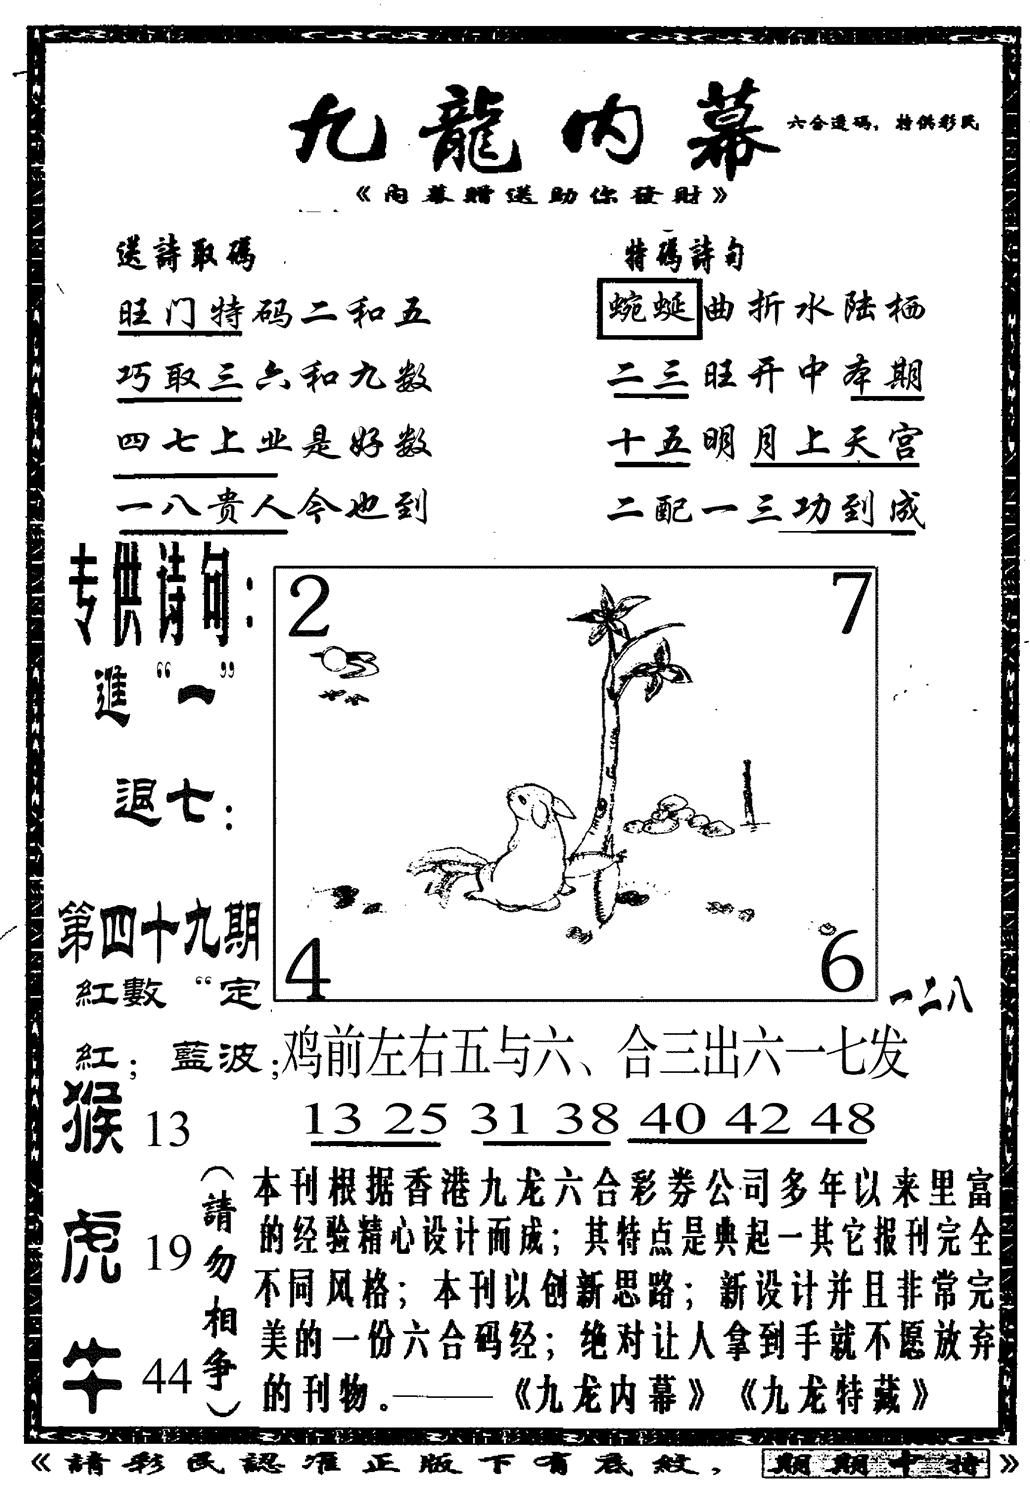 九龍内幕
六合透碼，特供彩民
《内幕贈送助你發財》
送詩取碼
旺门特码二和五
巧取三六和九数
四七上业是好数
一八贵人今也到
特碼詩句
蜿蜒曲折水陆栖
二三旺开中本期
十五明月上天宫
二配一三功到成
专供诗句：
進“一”
退七：
第四十九期
紅數“定
紅；藍波；
2 7
4 6
一二八
鸡前左右五与六、合三出六一七发
13 25 31 38 40 42 48
猴 13
虎 19
牛 44
（請勿相争）
本刊根据香港九龙六合彩券公司多年以来里富
的经验精心设计而成；其特点是典起一其它报刊完全
不同风格；本刊以创新思路；新设计并且非常完
美的一份六合码经；绝对让人拿到手就不愿放弃
的刊物。——《九龙内幕》《九龙特藏》
《請彩民認准正版下有底紋，期期中特》